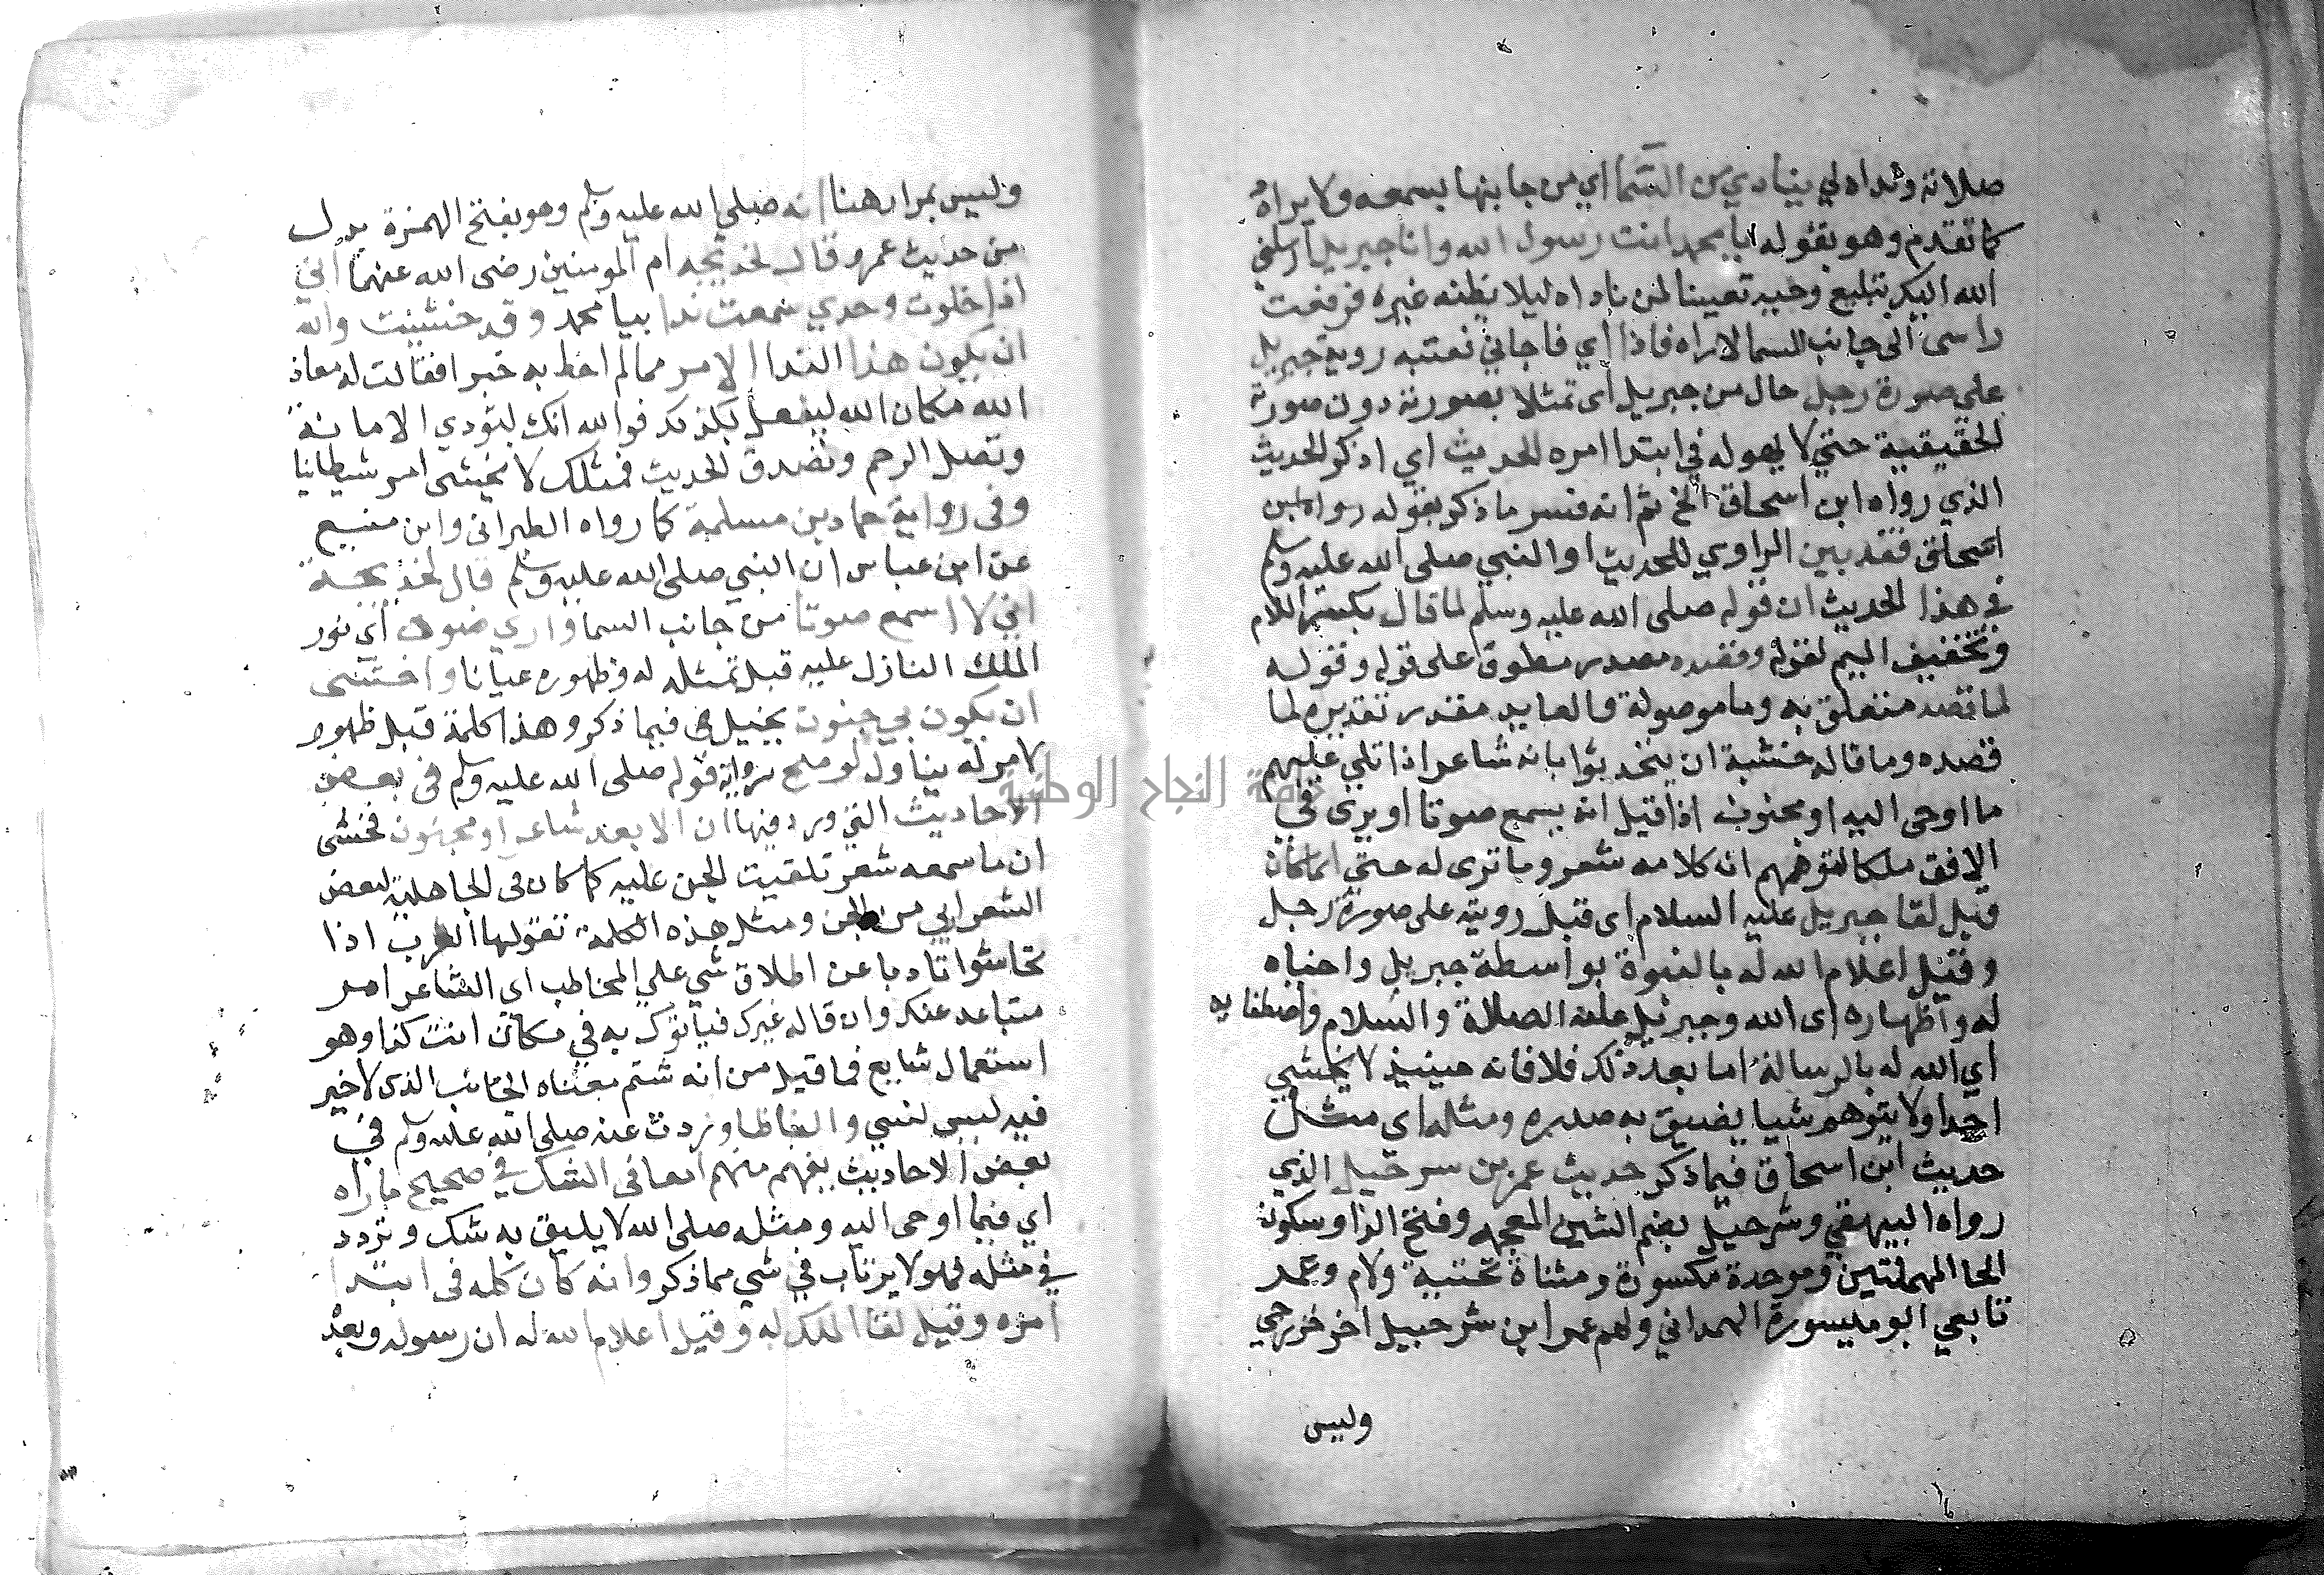 صلاته ونداه لي ينادي من السما اي من جانبها يسمعه ولا يراه
كما تقدم وهو بقوله يا محمد انت رسول الله وانا جبريل ارسلني
الله اليك بتبليغ وحيه تعيينا لمن ناداه ليلا يظنه غيره فرفعت
راسي الى جانب السما لاراه فاذا اي فاجاني نعتبه روية جبريل
على صورة رجل حال من جبريل اي تمثلا بصورته دون صورته
الحقيقية حتي لا يهوله في ابتدا امره الحديث اي اذكر الحديث
الذي رواه ابن اسحاق الخ ثم انه فسر ما ذكر بقوله رواه ابن
اسحاق فقد بين الراوي للحديث او النبي صلى الله عليه وسلم
في هذا الحديث ان قوله صلى الله عليه وسلم لما قال بكسر اللام
وتخفيف الميم لقوله وقصده مصدر معطوف على قوله وقوله
لما قصد متعلق به وما موصولة والعايد مقدر تقديره لما
قصده وما قاله خشية ان يتحدثوا بانه شاعر اذا تلي عليهم
ما اوحى اليه او مجنون اذا قيل انه يسمع صوتا او يرى في
الافق ملكا لتوهمهم انه كلامه شعر وما ترى له حتي انما كان
قبل لقا جبريل عليه السلام اى قبل رويته على صورة رجل
وقبل اعلام الله له بالنبوة بواسطة جبريل واخباه
له واظهاره اى الله وجبريل عليه الصلاة والسلام واصطفايه
اي الله له بالرسالة اما بعد ذلك فلا فانه حينيذ لا يخشي
احدا ولا يتوهم شيا يضيق به صدره ومثله اي مثل
حديث ابن اسحاق فيما ذكر حديث عمرو بن شرحبيل الذي
رواه البيهقي وشرحبيل بضم الشين المعجمه وفتح الرا وسكون
الحا المهملتين وموحدة مكسورة ومثناة تحتية ولام وعمر
تابعي ابو ميسورة الهمداني ولهم عمر ابن شرحبيل اخر خزرجي
وليس
وليس بمراد هنا انه صلى الله عليه وسلم وهو بفتح الهمزة بدل
من حديث عمرو قال لخديجه ام المومنين رضى الله عنهما اني
اذا خلوت وحدي سمعت ندا بيا محمد وقد خشيت والله
ان يكون هذا الندا الامر مما لم احط به خبرا فقالت له معاذ
الله مكان الله ليفعل بك ذلك فوالله انك لتؤدي الامانة
وتصل الرحم وتصدق الحديث فمثلك لا يخشى امر شيطانيا
وفى رواية حماد بن مسلمة كما رواه الطبرانى وابن منيع
عن ابن عباس ان النبي صلى الله عليه وسلم قال لخديجة
اني لا اسمع صوتا من جانب السما وارى ضوا اي نور
الملك النازل عليه قبل تمثله له وظهوره عيانا واخشى
ان يكون بي جنون بخيل لي فيما ذكر وهذا كلمة قبل ظهور
لامر له يتاول لو صح رواية قوله صلى الله عليه وسلم فى بعض
الاحاديث التي ورد فيها ان الابعد شاعر او مجنون فخشى
ان ما سمعه شعر تلقيت الجن عليه كما كان فى الجاهلية لبعض
الشعر اي من الجن ومثل هذه الكلمة تقولها العرب اذا
تحاشوا تادبا عن اطلاق شي علي المخاطب اي الشاعر امر
متباعد عنك وان قاله غيرك فيا توك به في مكان انت كذا وهو
استعمال شايع فما قيل من انه شتم معناه الخائب الذى لا خير
فيه ليس لنبي والفاظا وردت عنه صلى الله عليه وسلم في
بعض الاحاديث يفهم منهم امعا في الشك في صحيح ما راه
اي فيما اوحى اليه ومثله صلى الله لا يليق به شك وتردد
في مثله فهو لا يرتاب في شي مما ذكر وانه كان كله فى ابتدا
امره وقبل لقا الملك له وقبل اعلام الله له ان رسوله وبعد